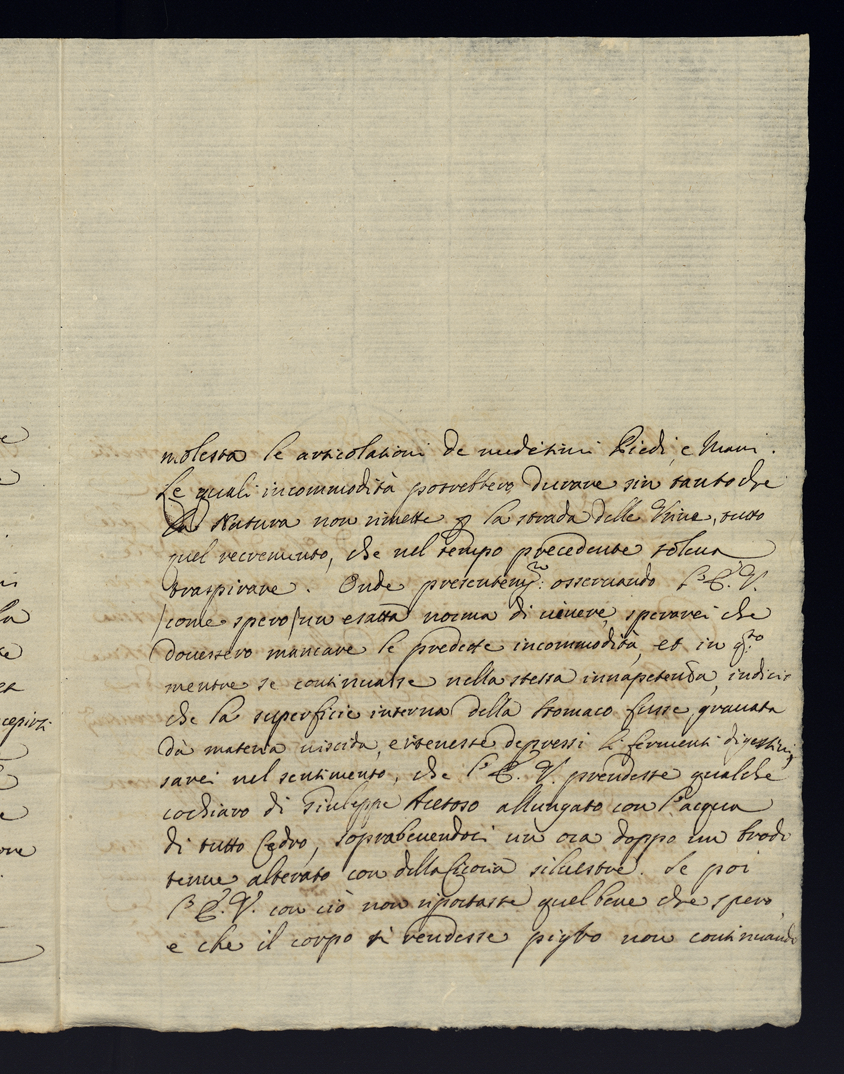 molesta le articolationi de medesimi Piedi, e Mani.
Le quali incommodità potrebbero durare sin tanto che
la Natura non rimette p la strada delle Vrine, tutto
quel recremento, che nel tempo precedente soleua
traspirare. Onde presentem.te osseruando l'E. V.
/come spero/ un esatta norma di uiuere, sperarei che
douessero mancare le predette incommodità, et in q.to
mentre se continuasse nella stessa innapetenda, indicio
che la superficie interna della stomaco fusse grauata
da materia uiscida, e teneste depressi li fermenti digestiui,
sarei nel sentimento, che l'E. V. prendesse qualche
cochiaro di Giuleppe Acetoso allungato con l'acqua
di tutto Cedro, soprabeuendoci un ora doppo un brodo
tenue alterato con della Cicoria siluestre. Se poi
l'E. V. con ciò non riportasse quel bene che spero,
e che il corpo si rendesse pigro non continuando
ne
la
te
et
ne